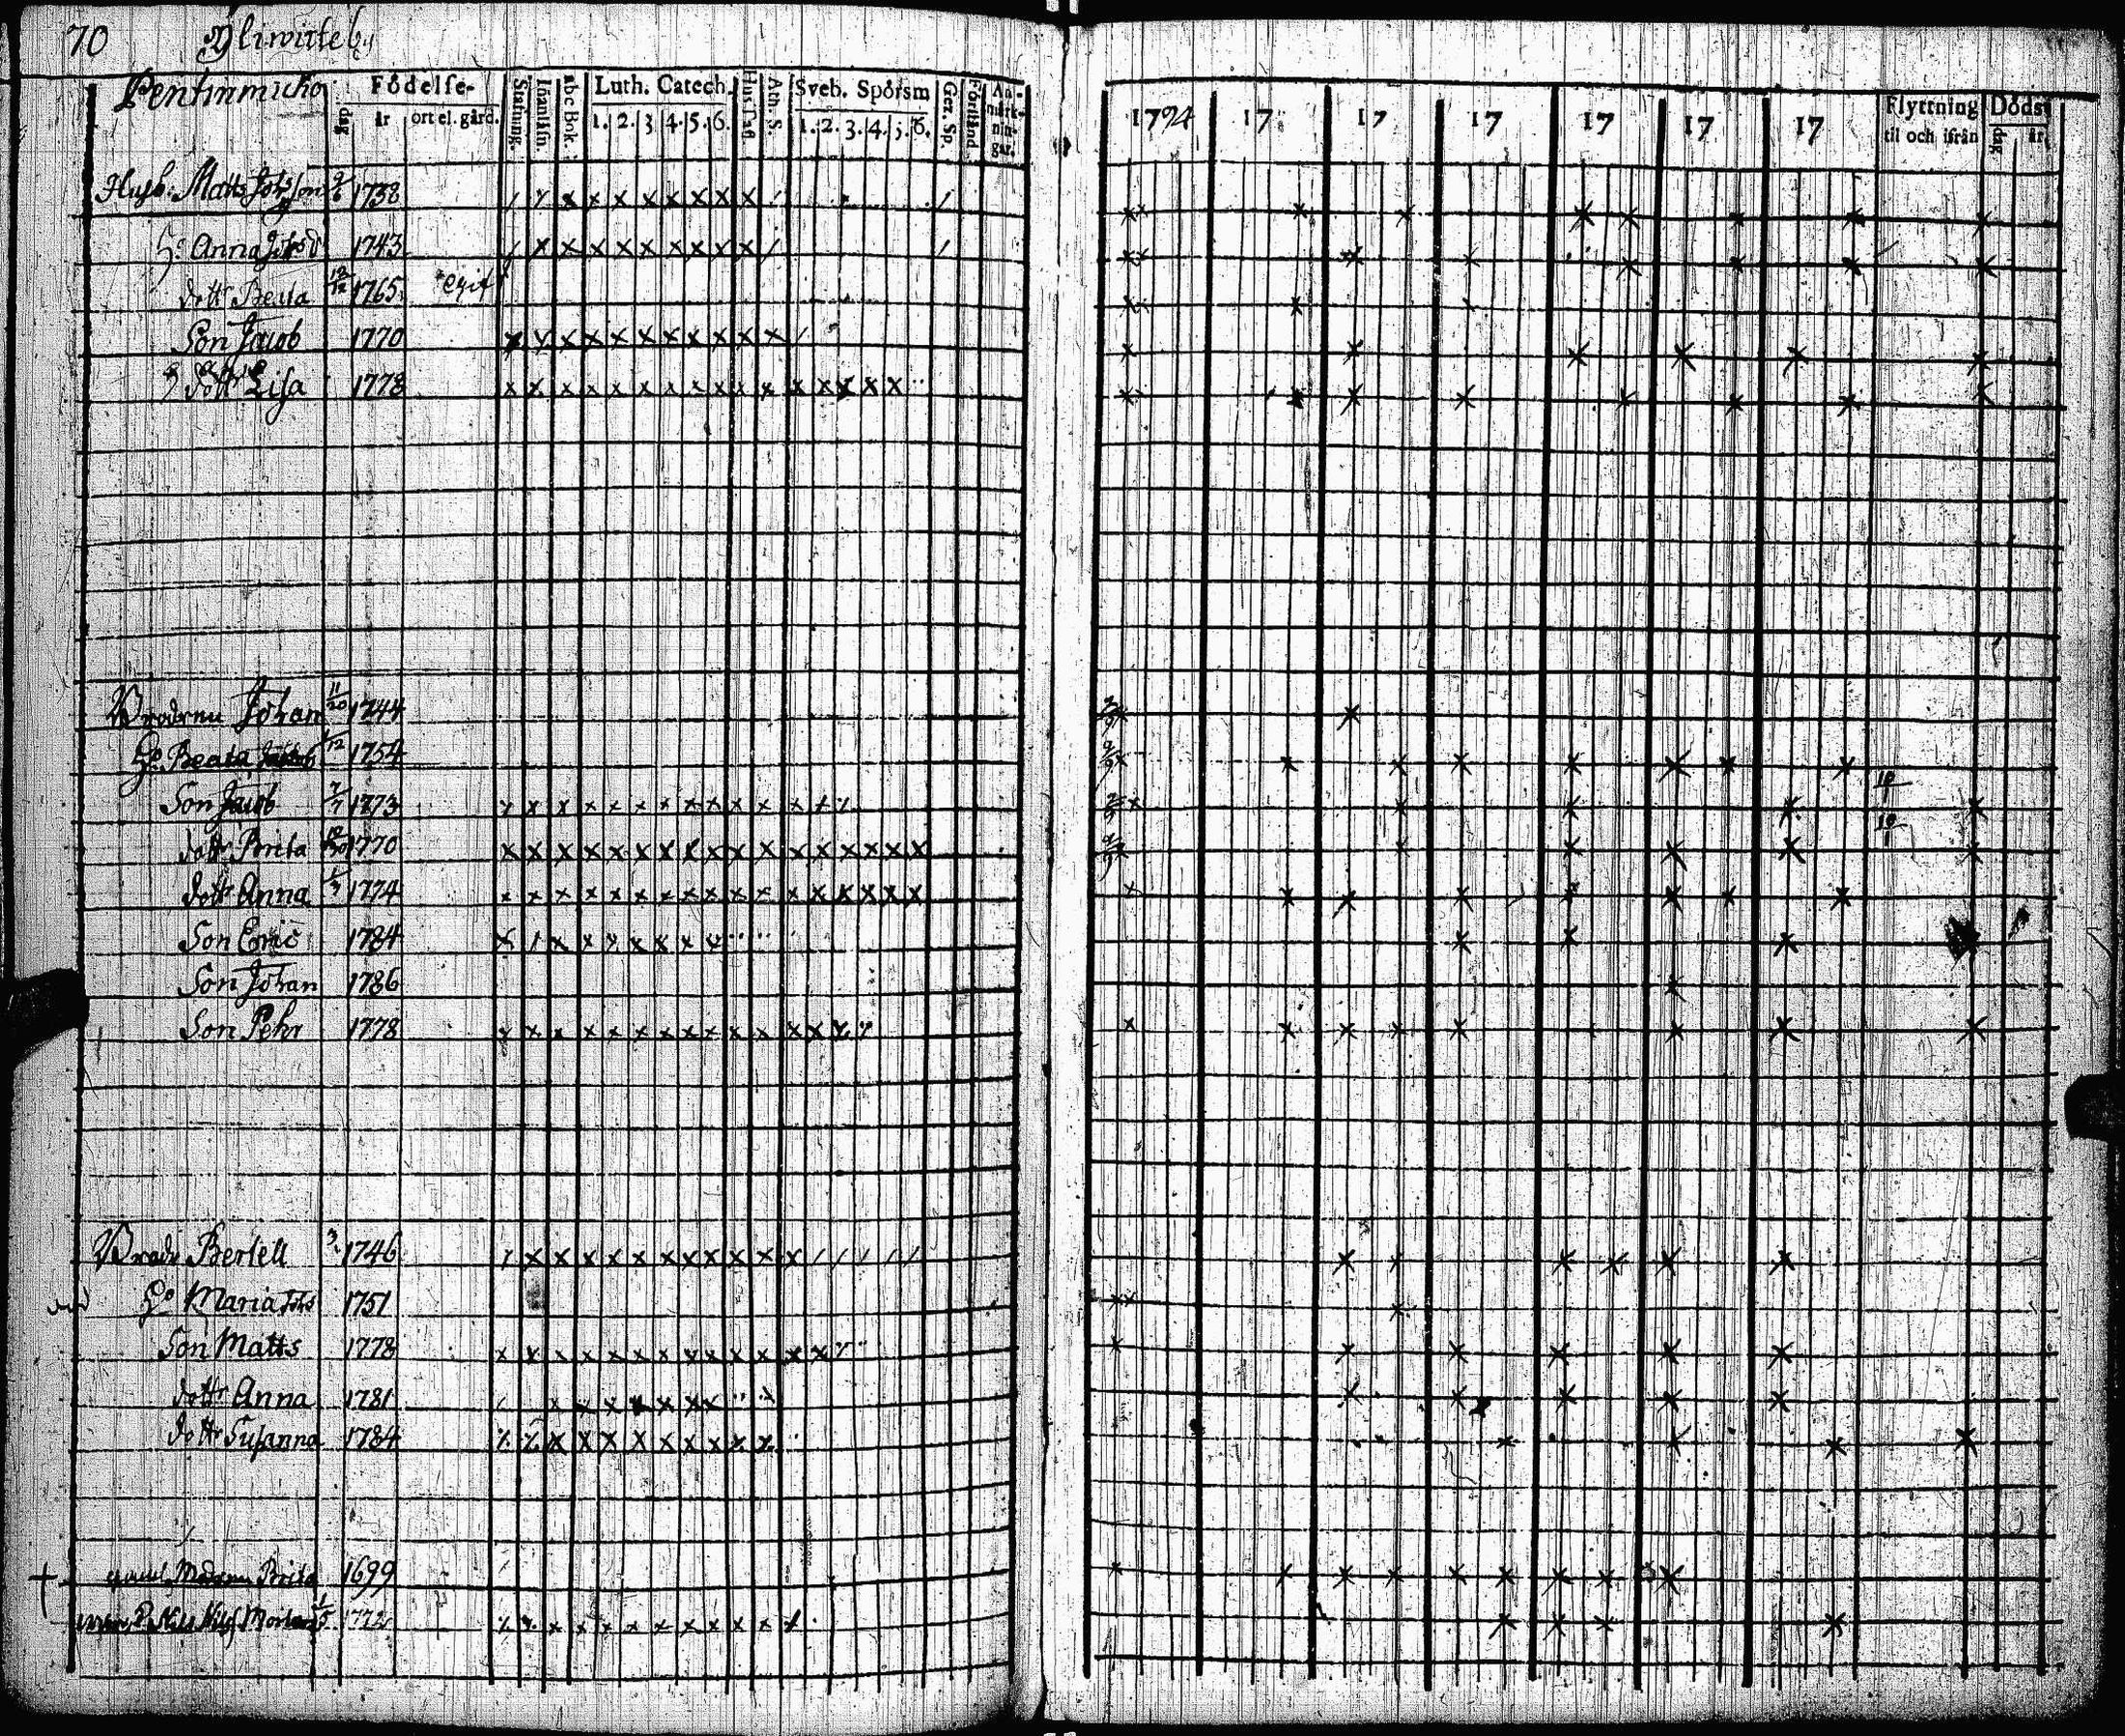 70 Yliwitteby
Pentinmicko
Födelse-
dag år ort el. gård.
Stafning. Innanläsn abc Bok. Luth. Catech. 1. 2. 3 4. 5. 6. Hus Taf. Ath. S. Sveb. Spörsm 1. 2. 3. 4. 5. 6. Ger. Sp. Förstånd. An-märk-nin-gar.
1794 17 17 17 17 17 17 Flyttning til och ifrån Döds dag år
Husb. Matts Johsson 9/6 1738
H. Anna Johsd 1743
dottr Beata 12/12 1765
Son Jacob 1770
dottr Lisa 1778
Brodren Johan 11/20 1744
Hu Beata /12 1754
Son Jacob 7/7 1773
dottr Brita 1770
dottr Anna 1774
Son Eric 1784
Son Johan 1786
Son Pehr 1778
Brodr Bertell 3 1746
Hu Maria Johs 1751
Son Matts 1778
dottr Anna 1781
dottr Susanna 1784
Modren Brita 1699
Nils 1772